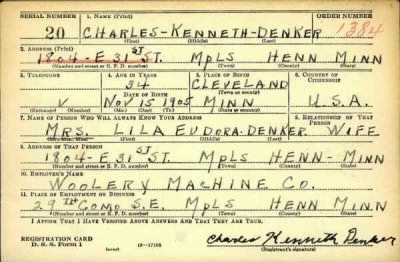 SERIAL NUMBER 1. NAME (Print) ORDER NUMBER
20 CHARLES-KENNETH-DENKER 1384
(First) (Middle) (Last)
2. ADDRESS (Print)
1804-E 31ST ST. MPLS HENN MINN
(Number and street or R. F. D. number) (Town) (County) (State)
3. TELEPHONE 4. AGE IN YEARS 5. PLACE OF BIRTH 6. COUNTRY OF CITIZENSHIP
34 CLEVELAND
DATE OF BIRTH (Town or county)
V NOV 15 1905 MINN U.S.A.
(Exchange) (Number) (Mo.) (Day) (Yr.) (State or country)
7. NAME OF PERSON WHO WILL ALWAYS KNOW YOUR ADDRESS 8. RELATIONSHIP OF THAT PERSON
MRS. LILA EUDORA-DENKER WIFE
(Mr., Mrs., Miss) (First) (Middle) (Last)
9. ADDRESS OF THAT PERSON
1804-E 31ST ST. MPLS HENN-MINN
(Number and street or R. F. D. number) (Town) (County) (State)
10. EMPLOYER'S NAME
WOOLERY MACHINE CO.
11. PLACE OF EMPLOYMENT OR BUSINESS
29TH COMO S.E. MPLS HENN MINN
(Number and street or R. F. D. number) (Town) (County) (State)
I AFFIRM THAT I HAVE VERIFIED ABOVE ANSWERS AND THAT THEY ARE TRUE.
REGISTRATION CARD
D. S. S. Form 1 (over) 16-17105 Charles Kenneth Denker
(Registrant's signature)